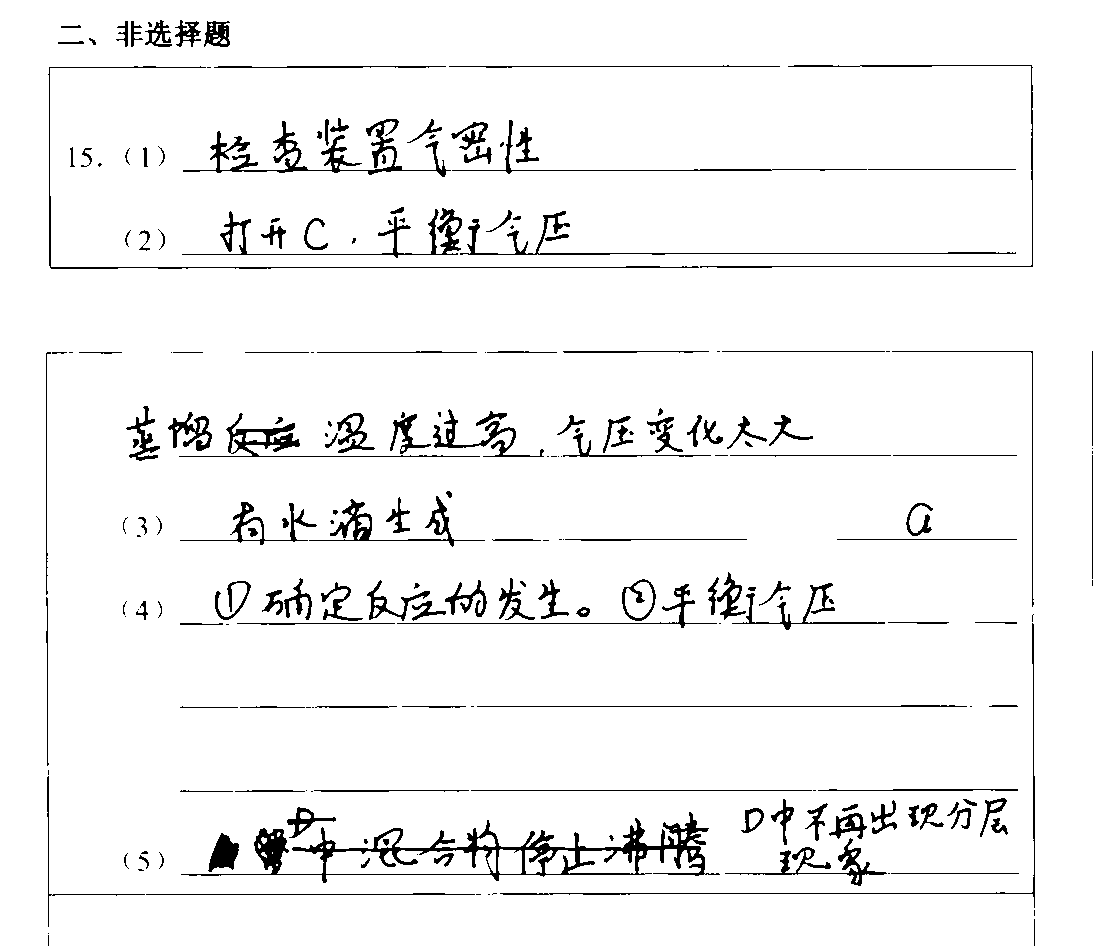 二、非选择题
15.（1） 检查装置气密性
（2） 打开C，平衡气压
蒸馏反应 温度过高，气压变化太大
（3） 有水滴生成 a
（4） ①确定反应的发生。②平衡气压
（5） D中混合物停止沸腾 D中不再出现分层
现象